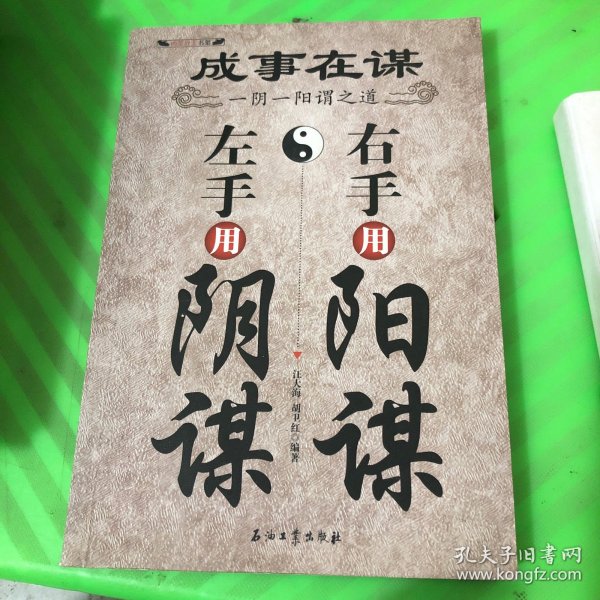 成事在谋
一阴一阳谓之道
右手用阳谋
左手用阴谋
江大海 胡卫红◎编著
石油工业出版社
孔夫子旧书网
www.kongfz.com